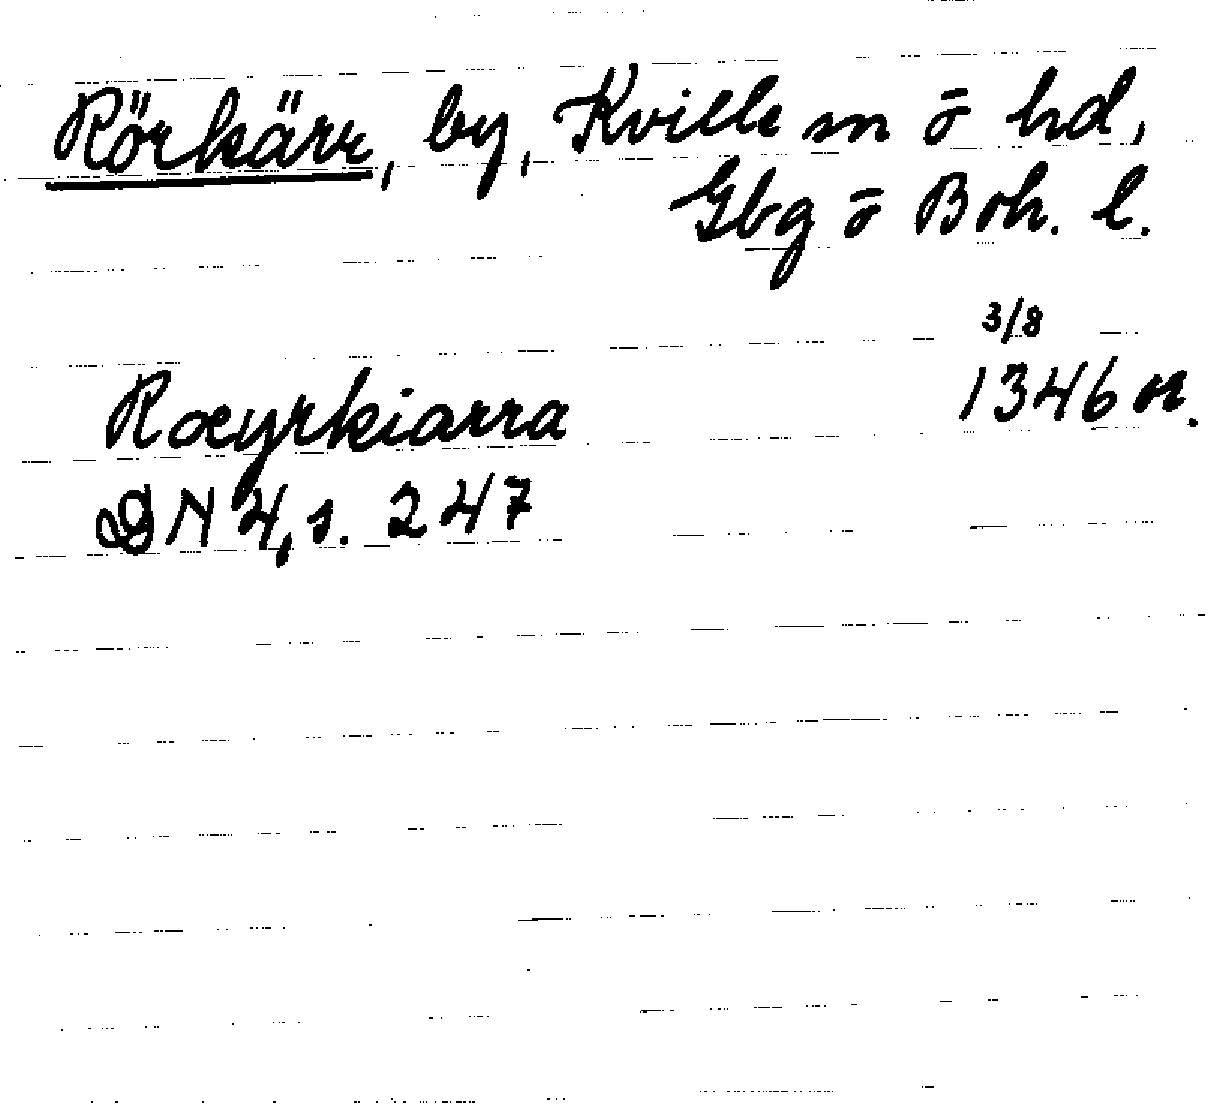 Rörkärr, by, Kville sn o hd,
Gbg o Boh. l.
3/8
Rœyrkiarra 1346 or.
DN 4, s. 247